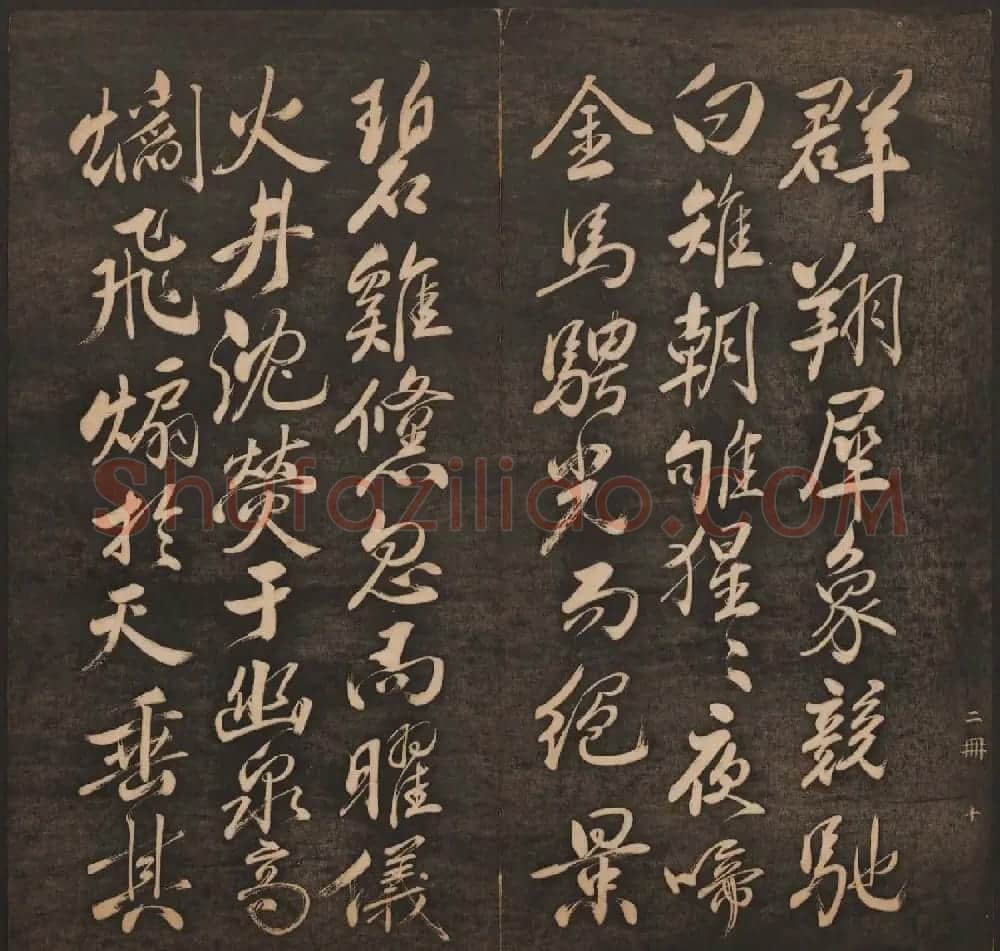 群翔犀象競馳
白雉朝雊猩〻夜啼
金馬騁光而絕景
碧雞儵忽而曜儀
火井沈熒于幽泉高
爓飛煽於天垂其
二冊 十
Shufaziliao.COM